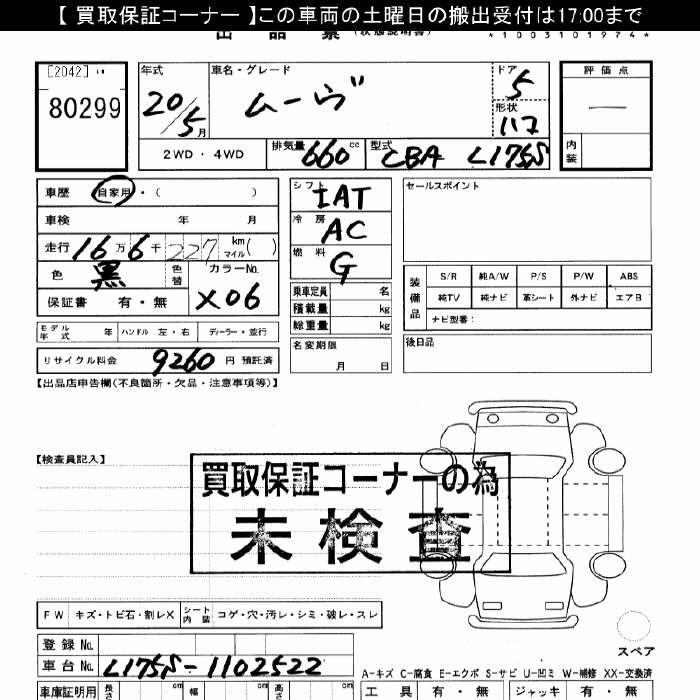 【 買取保証コーナー 】この車両の土曜日の搬出受付は17:00まで
出 品 票 (状態説明書) *1003101974*
[2042]
80299
年式 20/5月
車名・グレード ムーヴ
ドア 5
形状 
評価点 —
2WD・4WD
排気量 660cc
型式 CBA L175S
内装
車歴 自家用・( )
シフト IAT
セールスポイント
車検 年 月
冷房 AC
走行 16万6千227km マイル( )
燃料 G
色 黒 色替
カラーNo. X06
保証書 有・無
乗車定員 名
積載量 kg
総重量 kg
装備品 S/R 純A/W P/S P/W ABS
純TV 純ナビ 革シート 外ナビ エアB
ナビ型番:
モデル年式 年 ハンドル 左・右 ディーラー・並行
名変期限 月 日
後日品
リサイクル料金 9260 円 預託済
【出品店申告欄(不良箇所・欠品・注意事項等)】
【検査員記入】
買取保証コーナーの為
未検査
FW キズ・トビ石・割レX シート内装 コゲ・穴・汚レ・シミ・破レ・スレ
スペア
登録No.
車台No. L175S-1102522
A-キズ C-腐食 E-エクボ S-サビ U-凹ミ W-補修 XX-交換済
車庫証明用 長さ cm 幅 cm 高さ cm
工具 有・無 ジャッキ 有・無